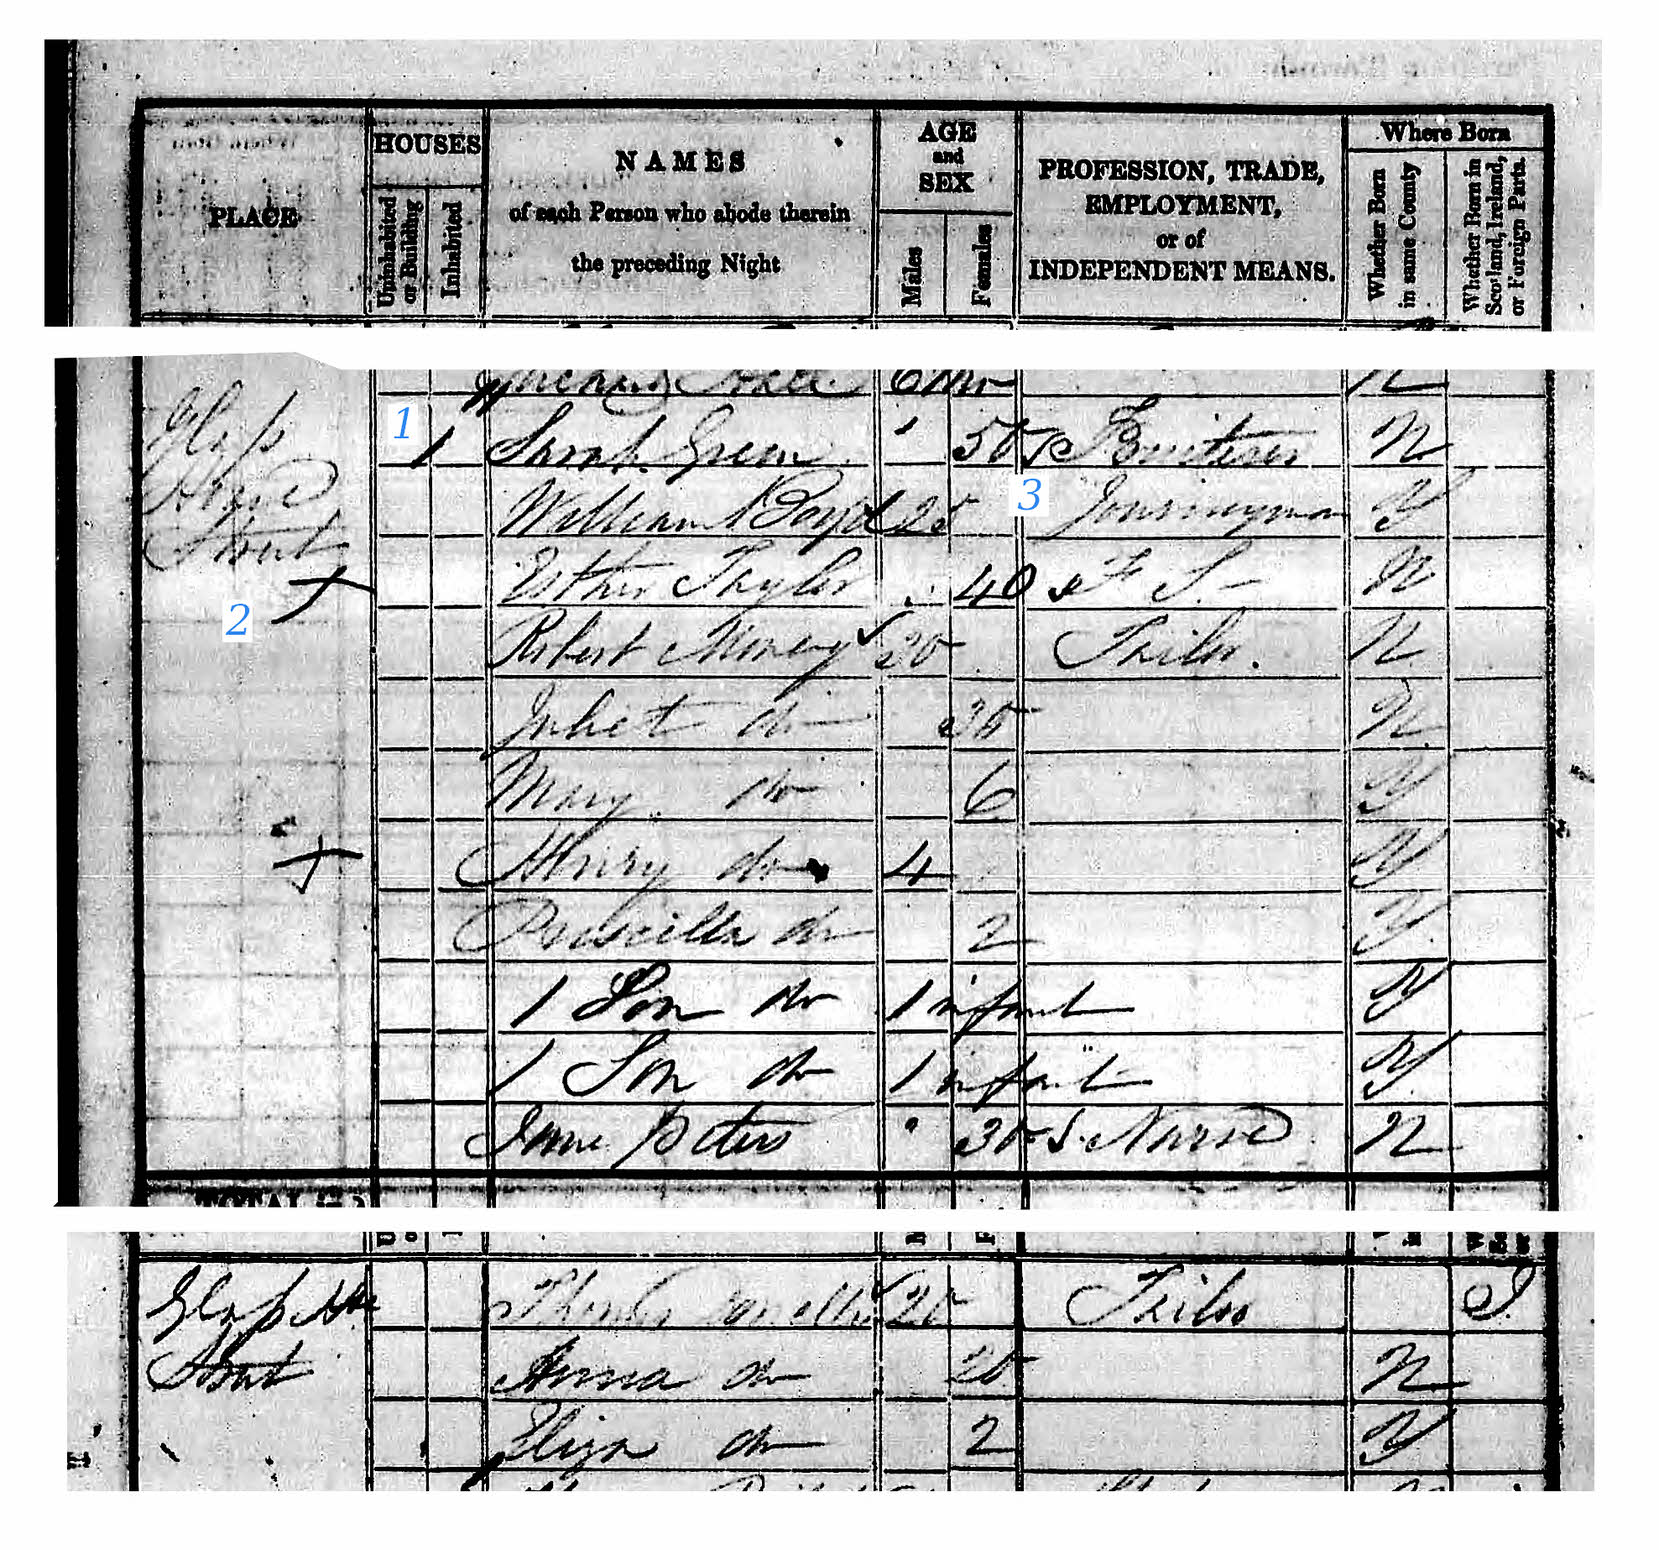 PLACE
HOUSES
Uninhabited or Building
Inhabited
NAMES
of each Person who abode therein
the preceding Night
AGE
and
SEX
Males
Females
PROFESSION, TRADE,
EMPLOYMENT,
or of
INDEPENDENT MEANS.
Where Born
Whether Born in same County
Whether Born in Scotland, Ireland, or Foreign Parts.
6 Mo N
1
Glass 1 Sarah Green 50 N
House William Boyd 25 Journeyman Y
3
Street Esther Taylor 40 F S N
2
Robert Money 30 Tailor. N
Juliet do 30 N
Mary do 6 Y
Henry do 4 Y
Priscilla do 2 Y
1 Son do 1 infant Y
1 Son do 1 infant Y
Jane Peters 30 S. Nurse N
TOTAL in
Glass Hse Thomas 20 Tailor I
Street Anna do 20 N
Eliza do 2 Y